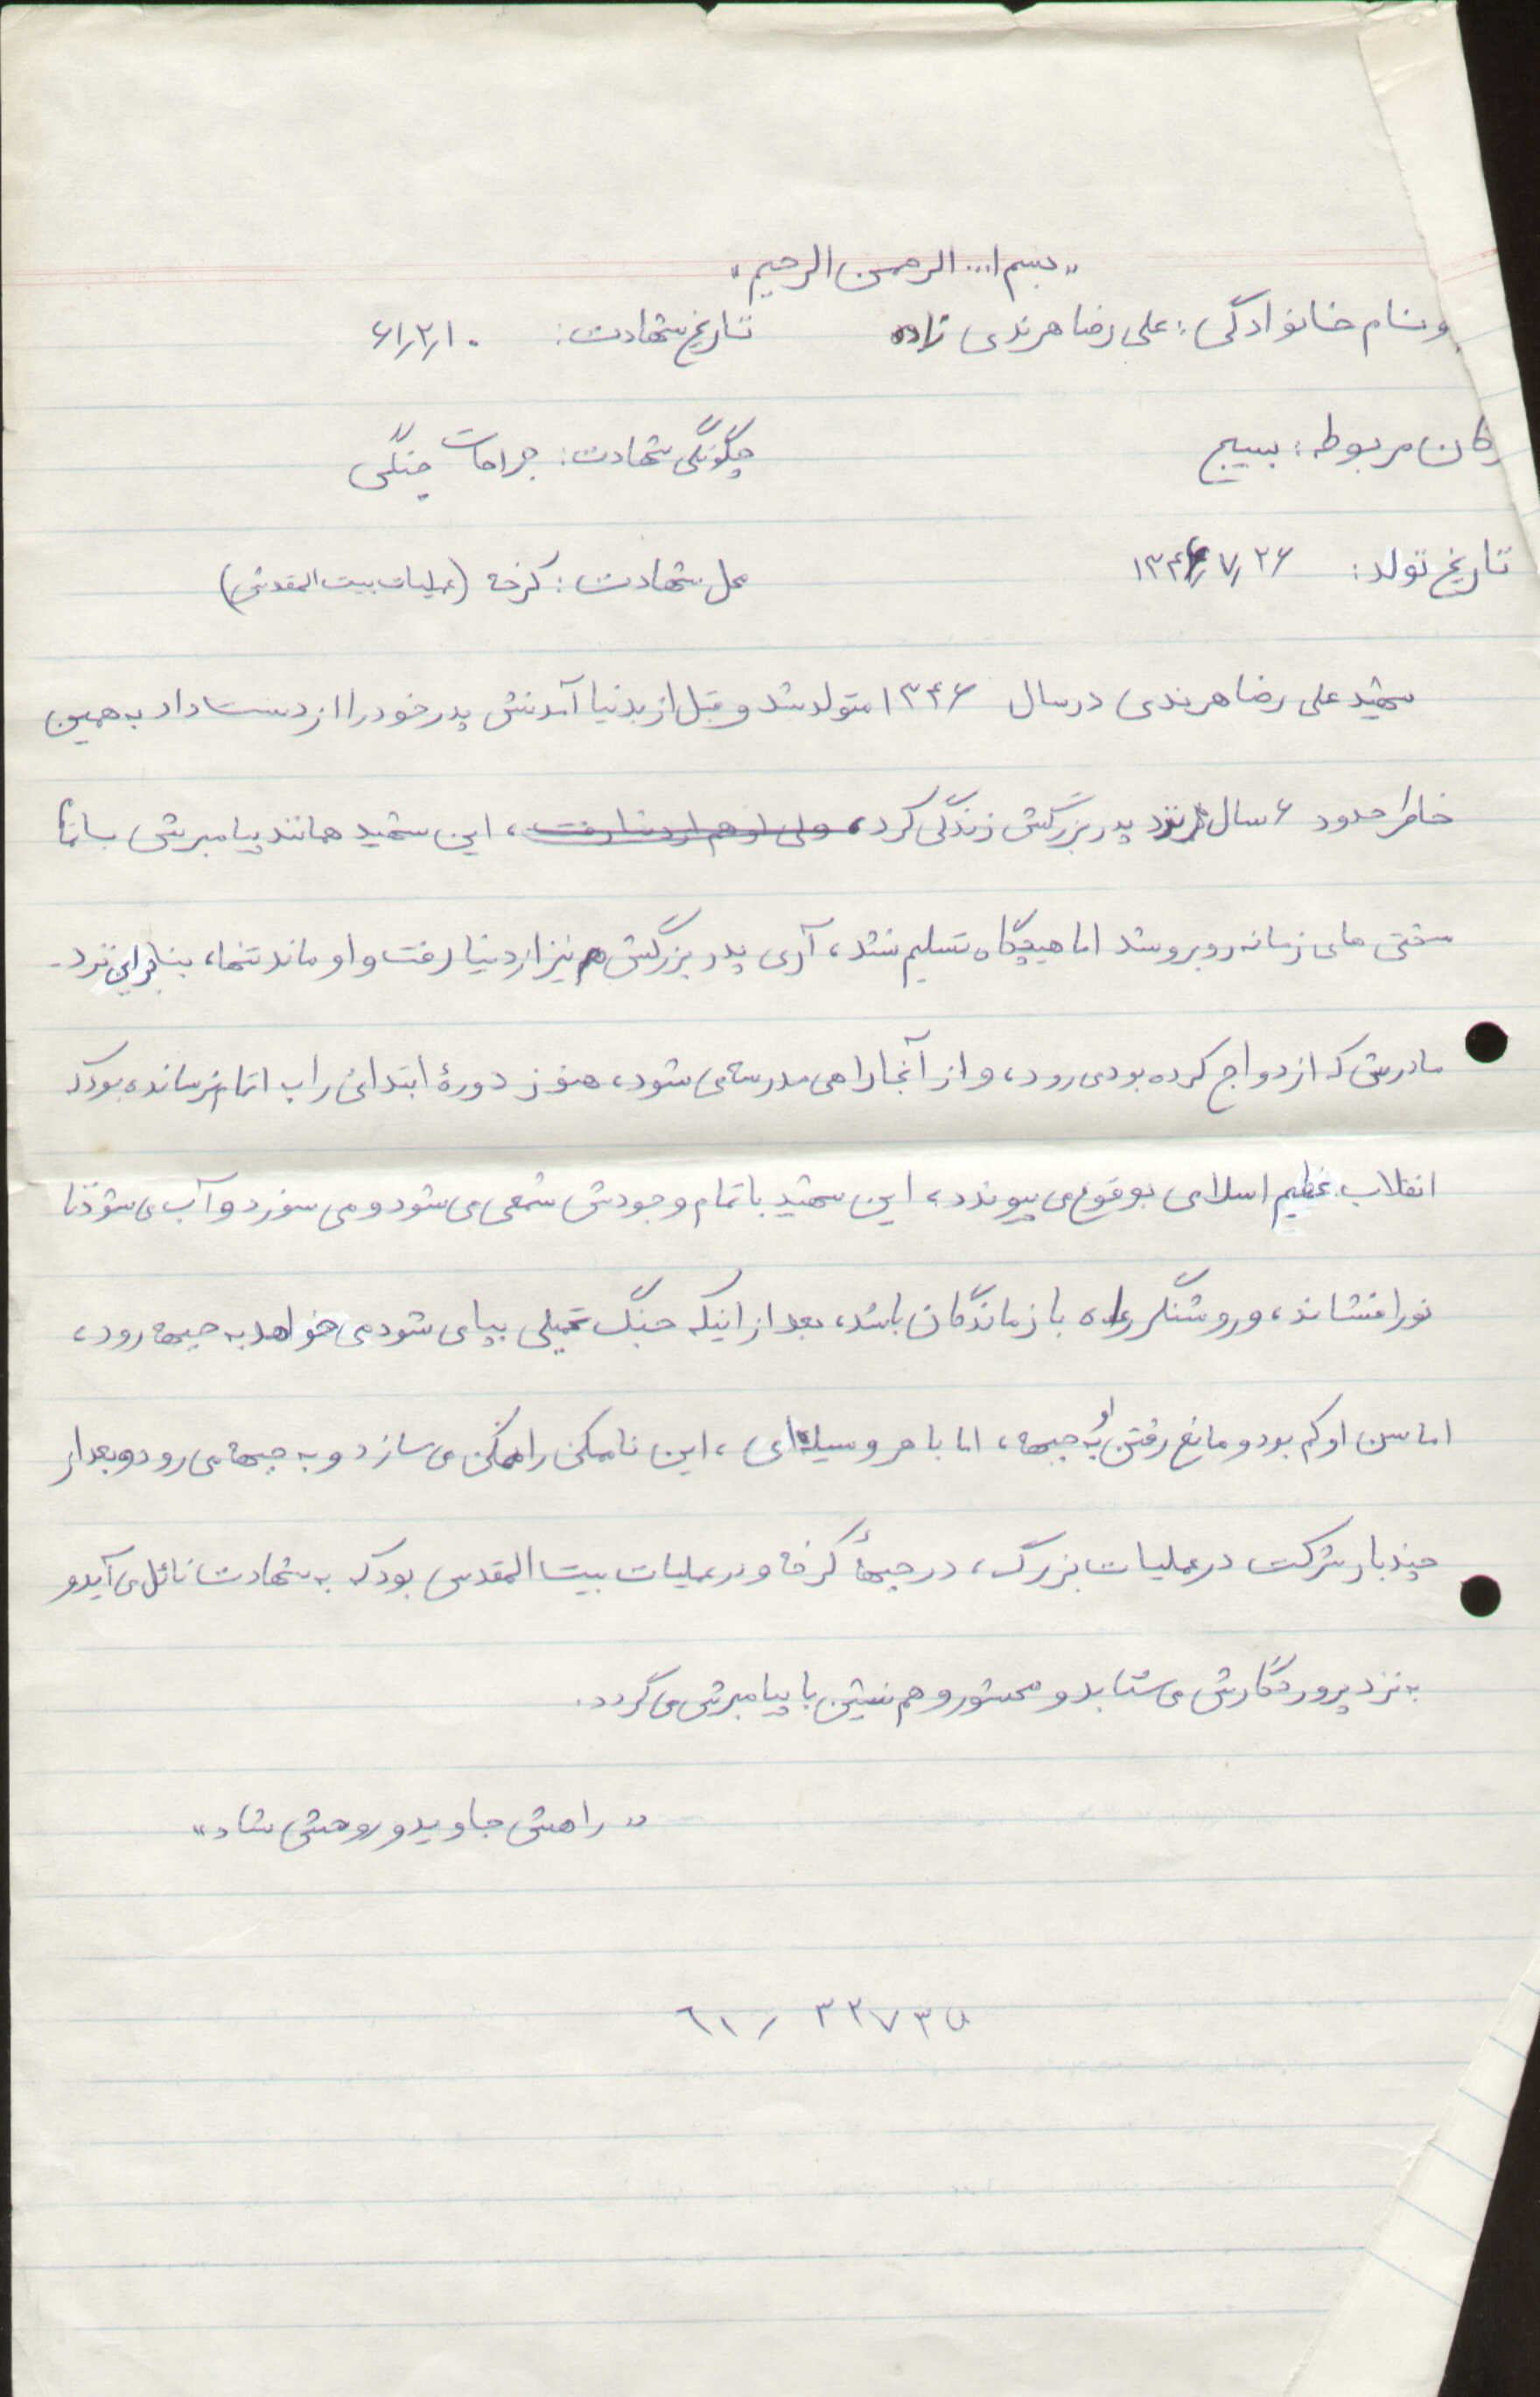 «بسم ا... الرحمن الرحیم»
و نام خانوادگی: علی رضا هرندی زاده تاریخ شهادت: ۶۱٫۲٫۱۰
ارگان مربوطه: بسیج چگونگی شهادت: جراحات جنگی
تاریخ تولد: ۱۳۴۶٫۷٫۲۶ محل شهادت: کرخه (عملیات بیت المقدس)
شهید علی رضا هرندی در سال ۱۳۴۶ متولد شد و قبل از بدنیا آمدنش پدر خود را از دست داد به همین
خاطر حدود ۶ سال نزد پدر بزرگش زندگی کرد، ولی او هم از دنیا رفت، این شهید همانند پیامبرش با تمام
سختی های زمانه روبرو شد اما هیچگاه تسلیم نشد، آری پدر بزرگش هم نیز از دنیا رفت و او ماند تنها، بنابراین نزد
مادرش که ازدواج کرده بود می رود، و از آنجا راهی مدرسه می شود، هنوز دورهٔ ابتدائی را به اتمام نرسانده بود که
انقلاب عظیم اسلامی بوقوع می پیوندد، این شهید با تمام وجودش شمعی می شود و می سوزد و آب می شود تا
نور افشاند، و روشنگر راه بازماندگان باشد، بعد از اینکه جنگ تحمیلی بپا می شود می خواهد به جبهه رود،
اما سن او کم بود و مانع رفتن او به جبهه، اما با هر وسیله ای، این ناممکن را ممکن می سازد و به جبهه می رود و بعد از
چند بار شرکت در عملیات بزرگ، در جبههٔ کرخه و در عملیات بیت المقدس بود که به شهادت نائل می آید و
به نزد پروردگارش می شتابد و محشور و هم نشین با پیامبرش می گردد.
«راهش جاوید و روحش شاد»
۶۱/۳۲۷۳۵